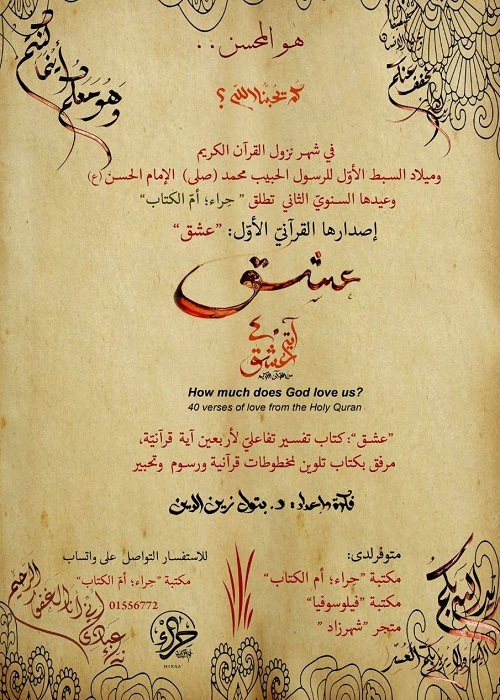 هو المحسن..
وَهُوَ مَعَكُمْ أَيْنَمَا كُنتُمْ
كم يحبنا الله ؟
في شهر نزول القرآن الكريم
وميلاد السبط الأوّل للرسول الحبيب محمد (صلى) الإمام الحسن(ع)
وعيدها السنويّ الثاني تطلق "حِراء؛ أمّ الكتاب"
إصدارها القرآنيّ الأوّل: "عشق"
عشق
٤٠ آية عشق
How much does God love us?
40 verses of love from the Holy Quran
"عشق": كتاب تفسير تفاعليّ لأربعين آية قرآنيّة،
مرفق بكتاب تلوين لمخطوطات قرآنية ورسوم وتحبير
فكرة وإعداد: د. بتول زين الدين
متوفر لدى:
مكتبة "حِراء؛ أم الكتاب"
مكتبة "فيلوسوفيا"
متجر "شهرزاد"
للاستفسار التواصل على واتساب
مكتبة "حِراء؛ أمّ الكتاب"
01556772
حراء
HIRAA'
نبئ عبادي أني أنا الغفور الرحيم
يريد الله بكم اليسر ولا يريد بكم العسر